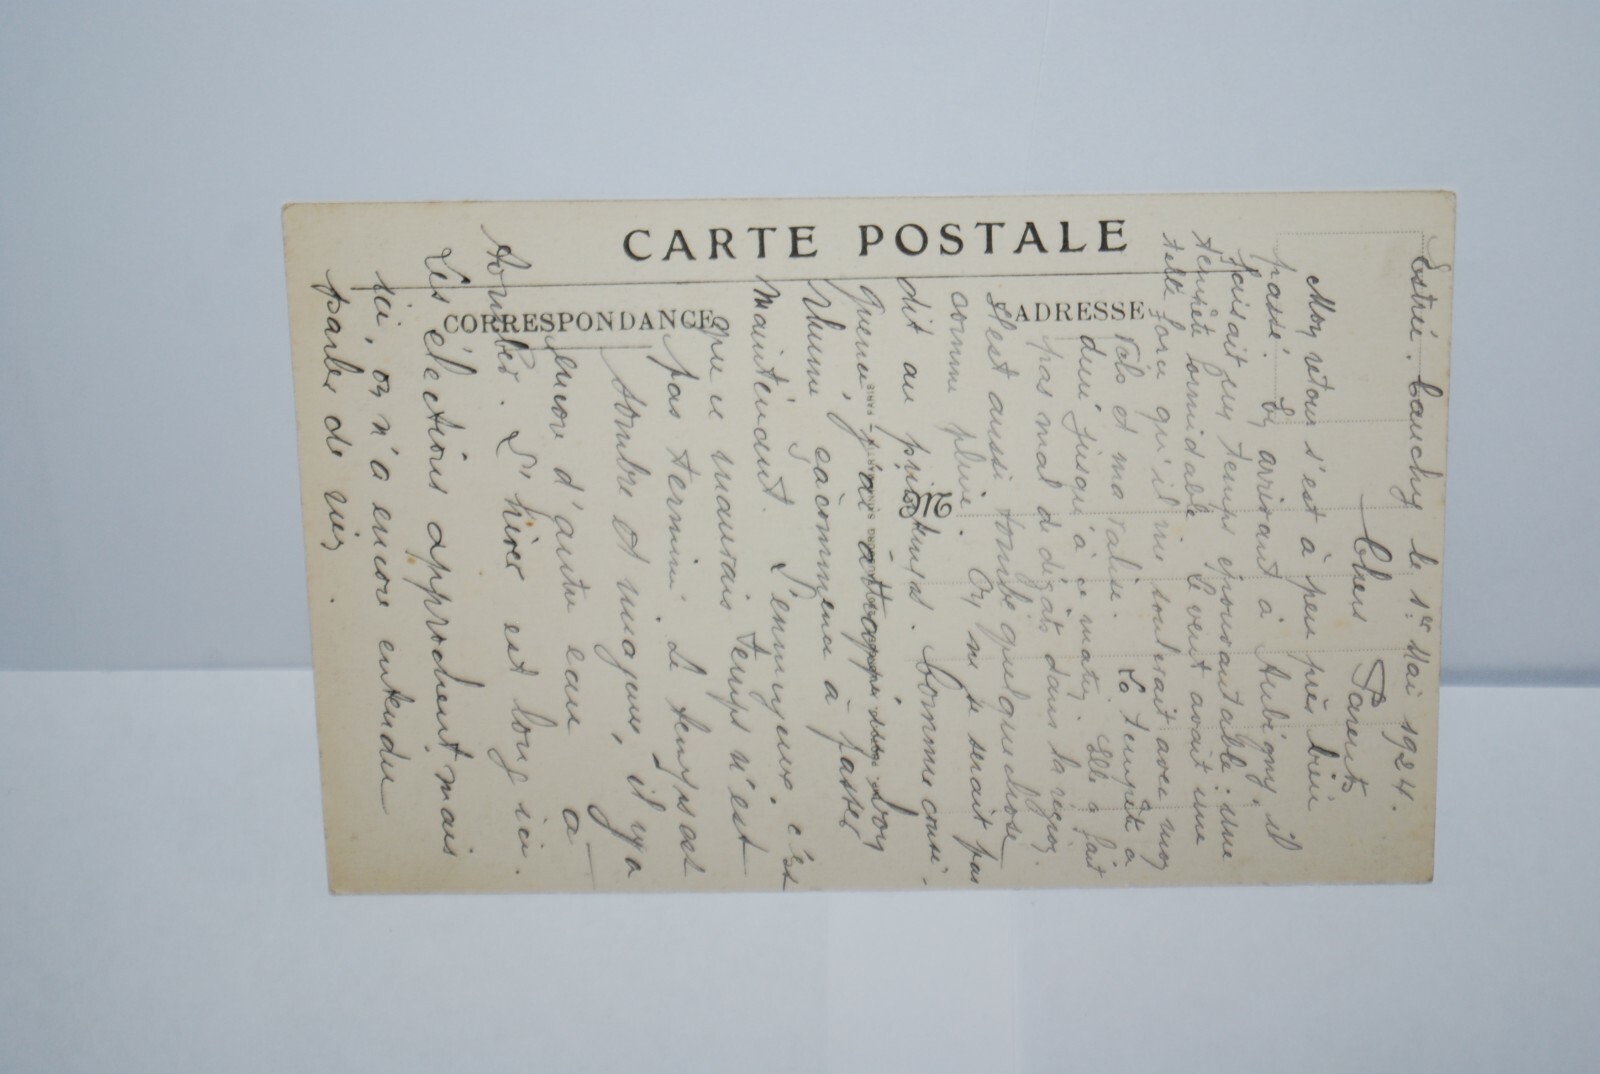 CARTE POSTALE
CORRESPONDANCE
ADRESSE
M
Estrée-Cauchy le 1er Mai 1924.
Chers Parents
Mon retour s'est à peu près bien
passé. En arrivant à Aubigny, il
faisait un temps épouvantable : une
tempête formidable. Le vent avait une
telle force qu'il me soulevait avec mon
vélo et ma valise. La tempête a
duré jusqu'à ce matin. Elle a fait
pas mal de dégâts dans la région.
Il est aussi tombé quelque chose
comme pluie. On ne se serait pas
dit au printemps. Comme consé-
quence, j'ai attrapé un bon
rhume ça commence à passer
maintenant. L'ennuyeux, c'est
que ce mauvais temps n'est
pas terminé. Le temps est
sombre et nuageux, il y a
encore d'autre eau à
tomber. L'hiver est long ici.
Les élections approchent mais
ici, on n'a encore entendu
parler de rien.